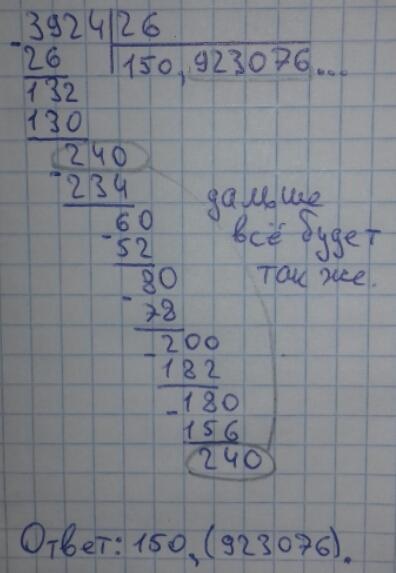 3924 26
26 150,923076...
132
130
240
234 дальше
60 всё будет
52 так же.
80
78
200
182
180
156
240
Ответ: 150,(923076).